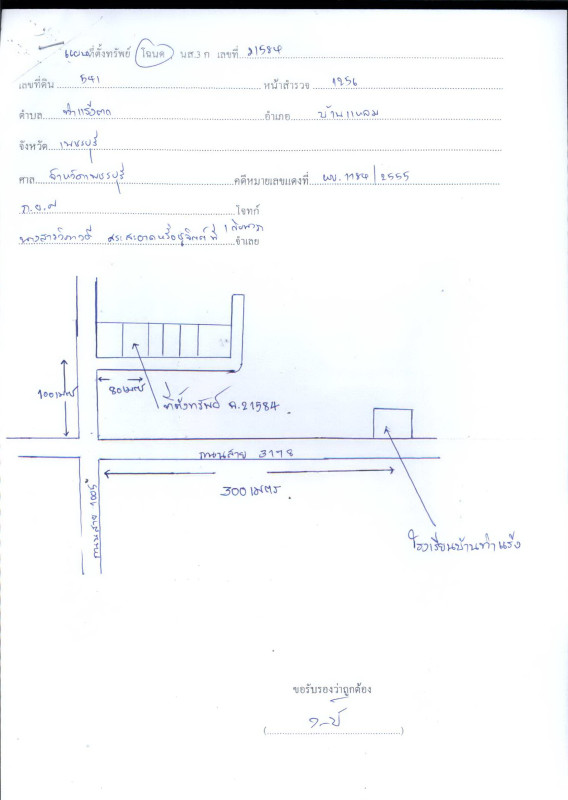 แผนที่ตั้งทรัพย์ โฉนด นส.3 ก เลขที่ 21584
เลขที่ดิน 541 หน้าสำรวจ 1256
ตำบล ท่าแร้งออก อำเภอ บ้านแหลม
จังหวัด เพชรบุรี
ศาล จังหวัดเพชรบุรี คดีหมายเลขแดงที่ ผบ. 1184/2555
โจทก์
นางสาววิภาวดี ที่ 1 กับพวก จำเลย
100 เมตร
80 เมตร
ที่ตั้งทรัพย์ ฉ.21584
ถนนสาย 3178
300 เมตร
ถนนสาย
โรงเรียนบ้านท่าแร้ง
ขอรับรองว่าถูกต้อง
(....................)